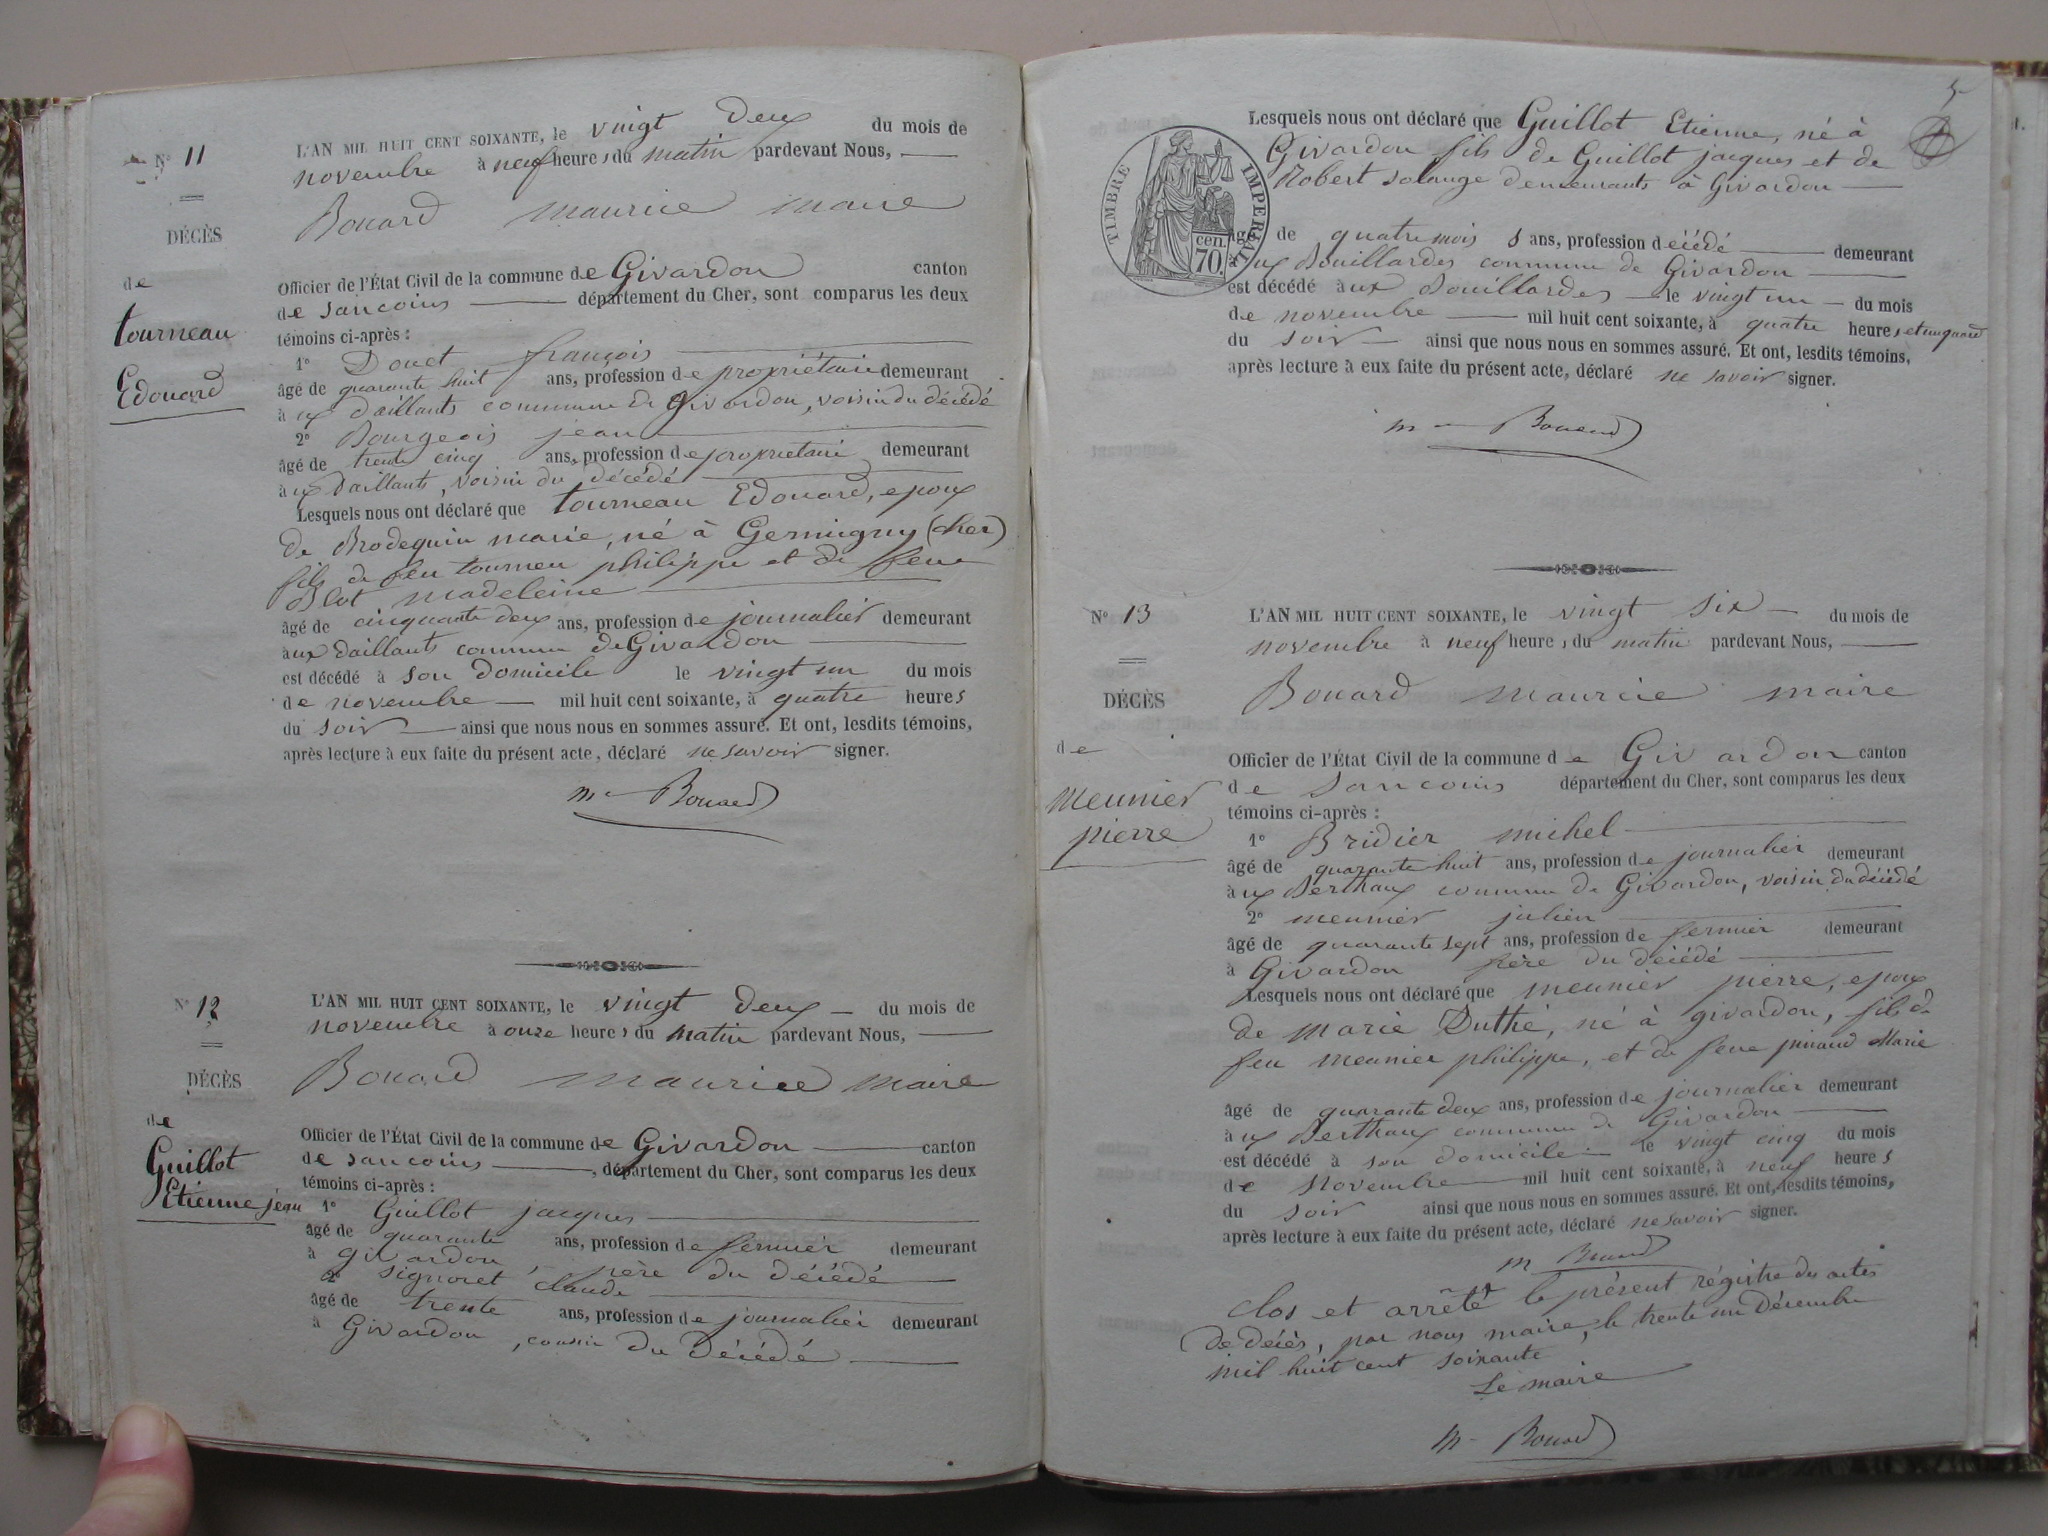 N° 11
DÉCÈS
de
tourneau
Edouard
L'AN MIL HUIT CENT SOIXANTE, le vingt deux du mois de
novembre à neuf heures du matin pardevant Nous,
Bouard maurice maire
Officier de l'État Civil de la commune de Givardon canton
de Sancoins département du Cher, sont comparus les deux
témoins ci-après :
1° Douet françois
âgé de quarante huit ans, profession de propriétaire demeurant
à ux daillants commune de Givardon, voisin du décédé
2° Bourgeois jean
âgé de trente cinq ans, profession de propriétaire demeurant
à ux daillants, voisin du décédé
Lesquels nous ont déclaré que tourneau Edouard, epoux
de Brodequin marie, né à Germigny (cher)
fils de feu tourneu philippe et de feue
Blot madeleine
âgé de cinquante deux ans, profession de journalier demeurant
aux daillants commune de Givardon
est décédé à son domicile le vingt un du mois
de novembre mil huit cent soixante, à quatre heures
du soir ainsi que nous nous en sommes assuré. Et ont, lesdits témoins,
après lecture à eux faite du présent acte, déclaré ne savoir signer.
m Bouard
N° 12
DÉCÈS
de
Guillot
Etienne jean
L'AN MIL HUIT CENT SOIXANTE, le vingt deux du mois de
novembre à onze heures du matin pardevant Nous,
Bouard maurice maire
Officier de l'État Civil de la commune de Givardon canton
de Sancoins, département du Cher, sont comparus les deux
témoins ci-après :
1° Guillot jacques
âgé de quarante ans, profession de fermier demeurant
à givardon, père du décédé
2° Signoret claude
âgé de trente ans, profession de journalier demeurant
à Givardon, cousin du décédé
5
TIMBRE IMPERIAL
cen.
70.
Lesquels nous ont déclaré que Guillot Etienne, né à
Givardon fils de Guillot jacques et de
Robert Solange demeurants à Givardon
âgé de quatre mois s ans, profession décédé demeurant
à ux Bouillardes commune de Givardon
est décédé aux Bouillardes le vingt un du mois
de novembre mil huit cent soixante, à quatre heures et un quard
du soir ainsi que nous nous en sommes assuré. Et ont, lesdits témoins,
après lecture à eux faite du présent acte, déclaré ne savoir signer.
m Bouard
N° 13
DÉCÈS
de
meunier
pierre
L'AN MIL HUIT CENT SOIXANTE, le vingt six du mois de
novembre à neuf heures du matin pardevant Nous,
Bouard maurice maire
Officier de l'État Civil de la commune de Givardon canton
de Sancoins département du Cher, sont comparus les deux
témoins ci-après :
1° Bridier michel
âgé de quarante huit ans, profession de journalier demeurant
à ux Berthaux commune de Givardon, voisin du décédé
2° meunier julien
âgé de quarante sept ans, profession de fermier demeurant
à Givardon frère du décédé
Lesquels nous ont déclaré que meunier pierre, epoux
de marie Duthé, né à givardon, fils de
feu meunier philippe, et de feue pinaud Marie
âgé de quarante deux ans, profession de journalier demeurant
à ux Berthaux commune de Givardon
est décédé à son domicile le vingt cinq du mois
de Novembre mil huit cent soixante, à neuf heures
du soir ainsi que nous nous en sommes assuré. Et ont, lesdits témoins,
après lecture à eux faite du présent acte, déclaré ne savoir signer.
m Bouard
Clos et arrêté le présent régistre des actes
de décès, par nous maire, le trente un Décembre
mil huit cent soixante
Le maire
m Bouard